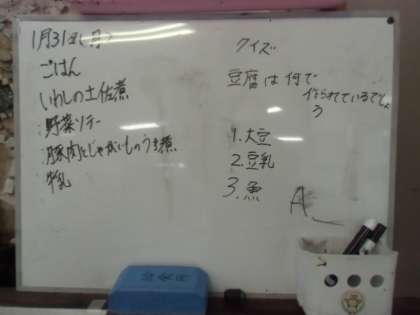 1月31日(月)
ごはん
いわしの土佐煮
野菜ソテー
豚肉とじゃがいものうま煮
牛乳
クイズ
豆腐は何で
作られているでしょ
う
1.大豆
2.豆乳
3.魚
A